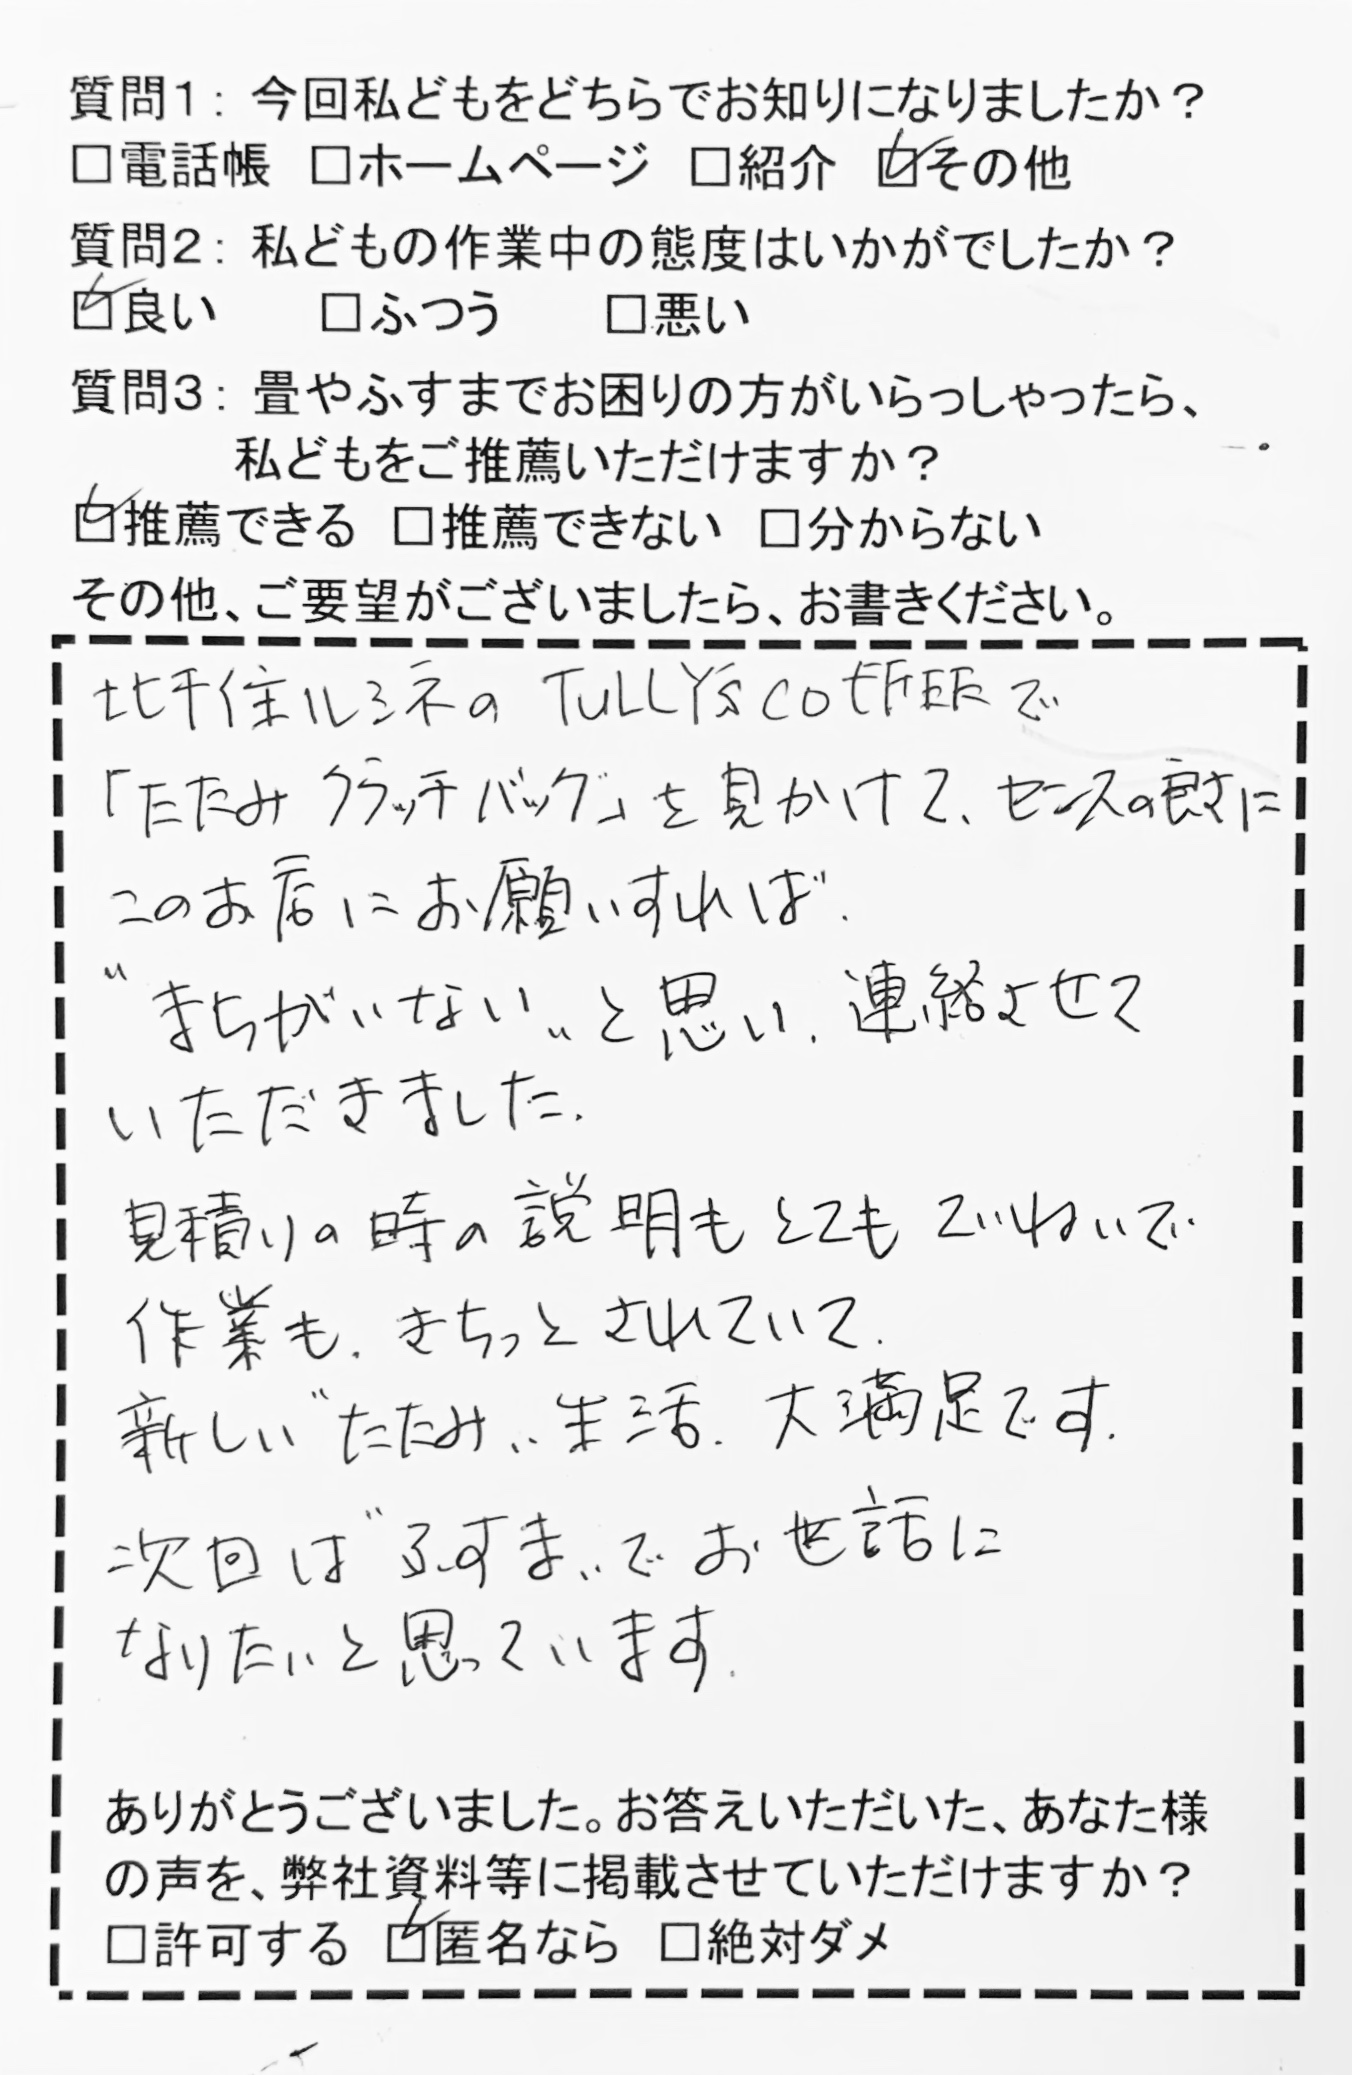 質問1：今回私どもをどちらでお知りになりましたか？
□電話帳 □ホームページ □紹介 ☑その他
質問2：私どもの作業中の態度はいかがでしたか？
☑良い □ふつう □悪い
質問3：畳やふすまでお困りの方がいらっしゃったら、
私どもをご推薦いただけますか？
☑推薦できる □推薦できない □分からない
その他、ご要望がございましたら、お書きください。
北千住ルミネの TULLY'S COFFEEで
「たたみクラッチバッグ」を見かけて、センスの良さに
このお店にお願いすれば、
“まちがいない”と思い、連絡させて
いただきました。
見積りの時の説明もとてもていねいで
作業も、きちっとされていて、
新しい“たたみ”生活、大満足です。
次回は“ふすま”でお世話に
なりたいと思っています。
ありがとうございました。お答えいただいた、あなた様
の声を、弊社資料等に掲載させていただけますか？
□許可する ☑匿名なら □絶対ダメ